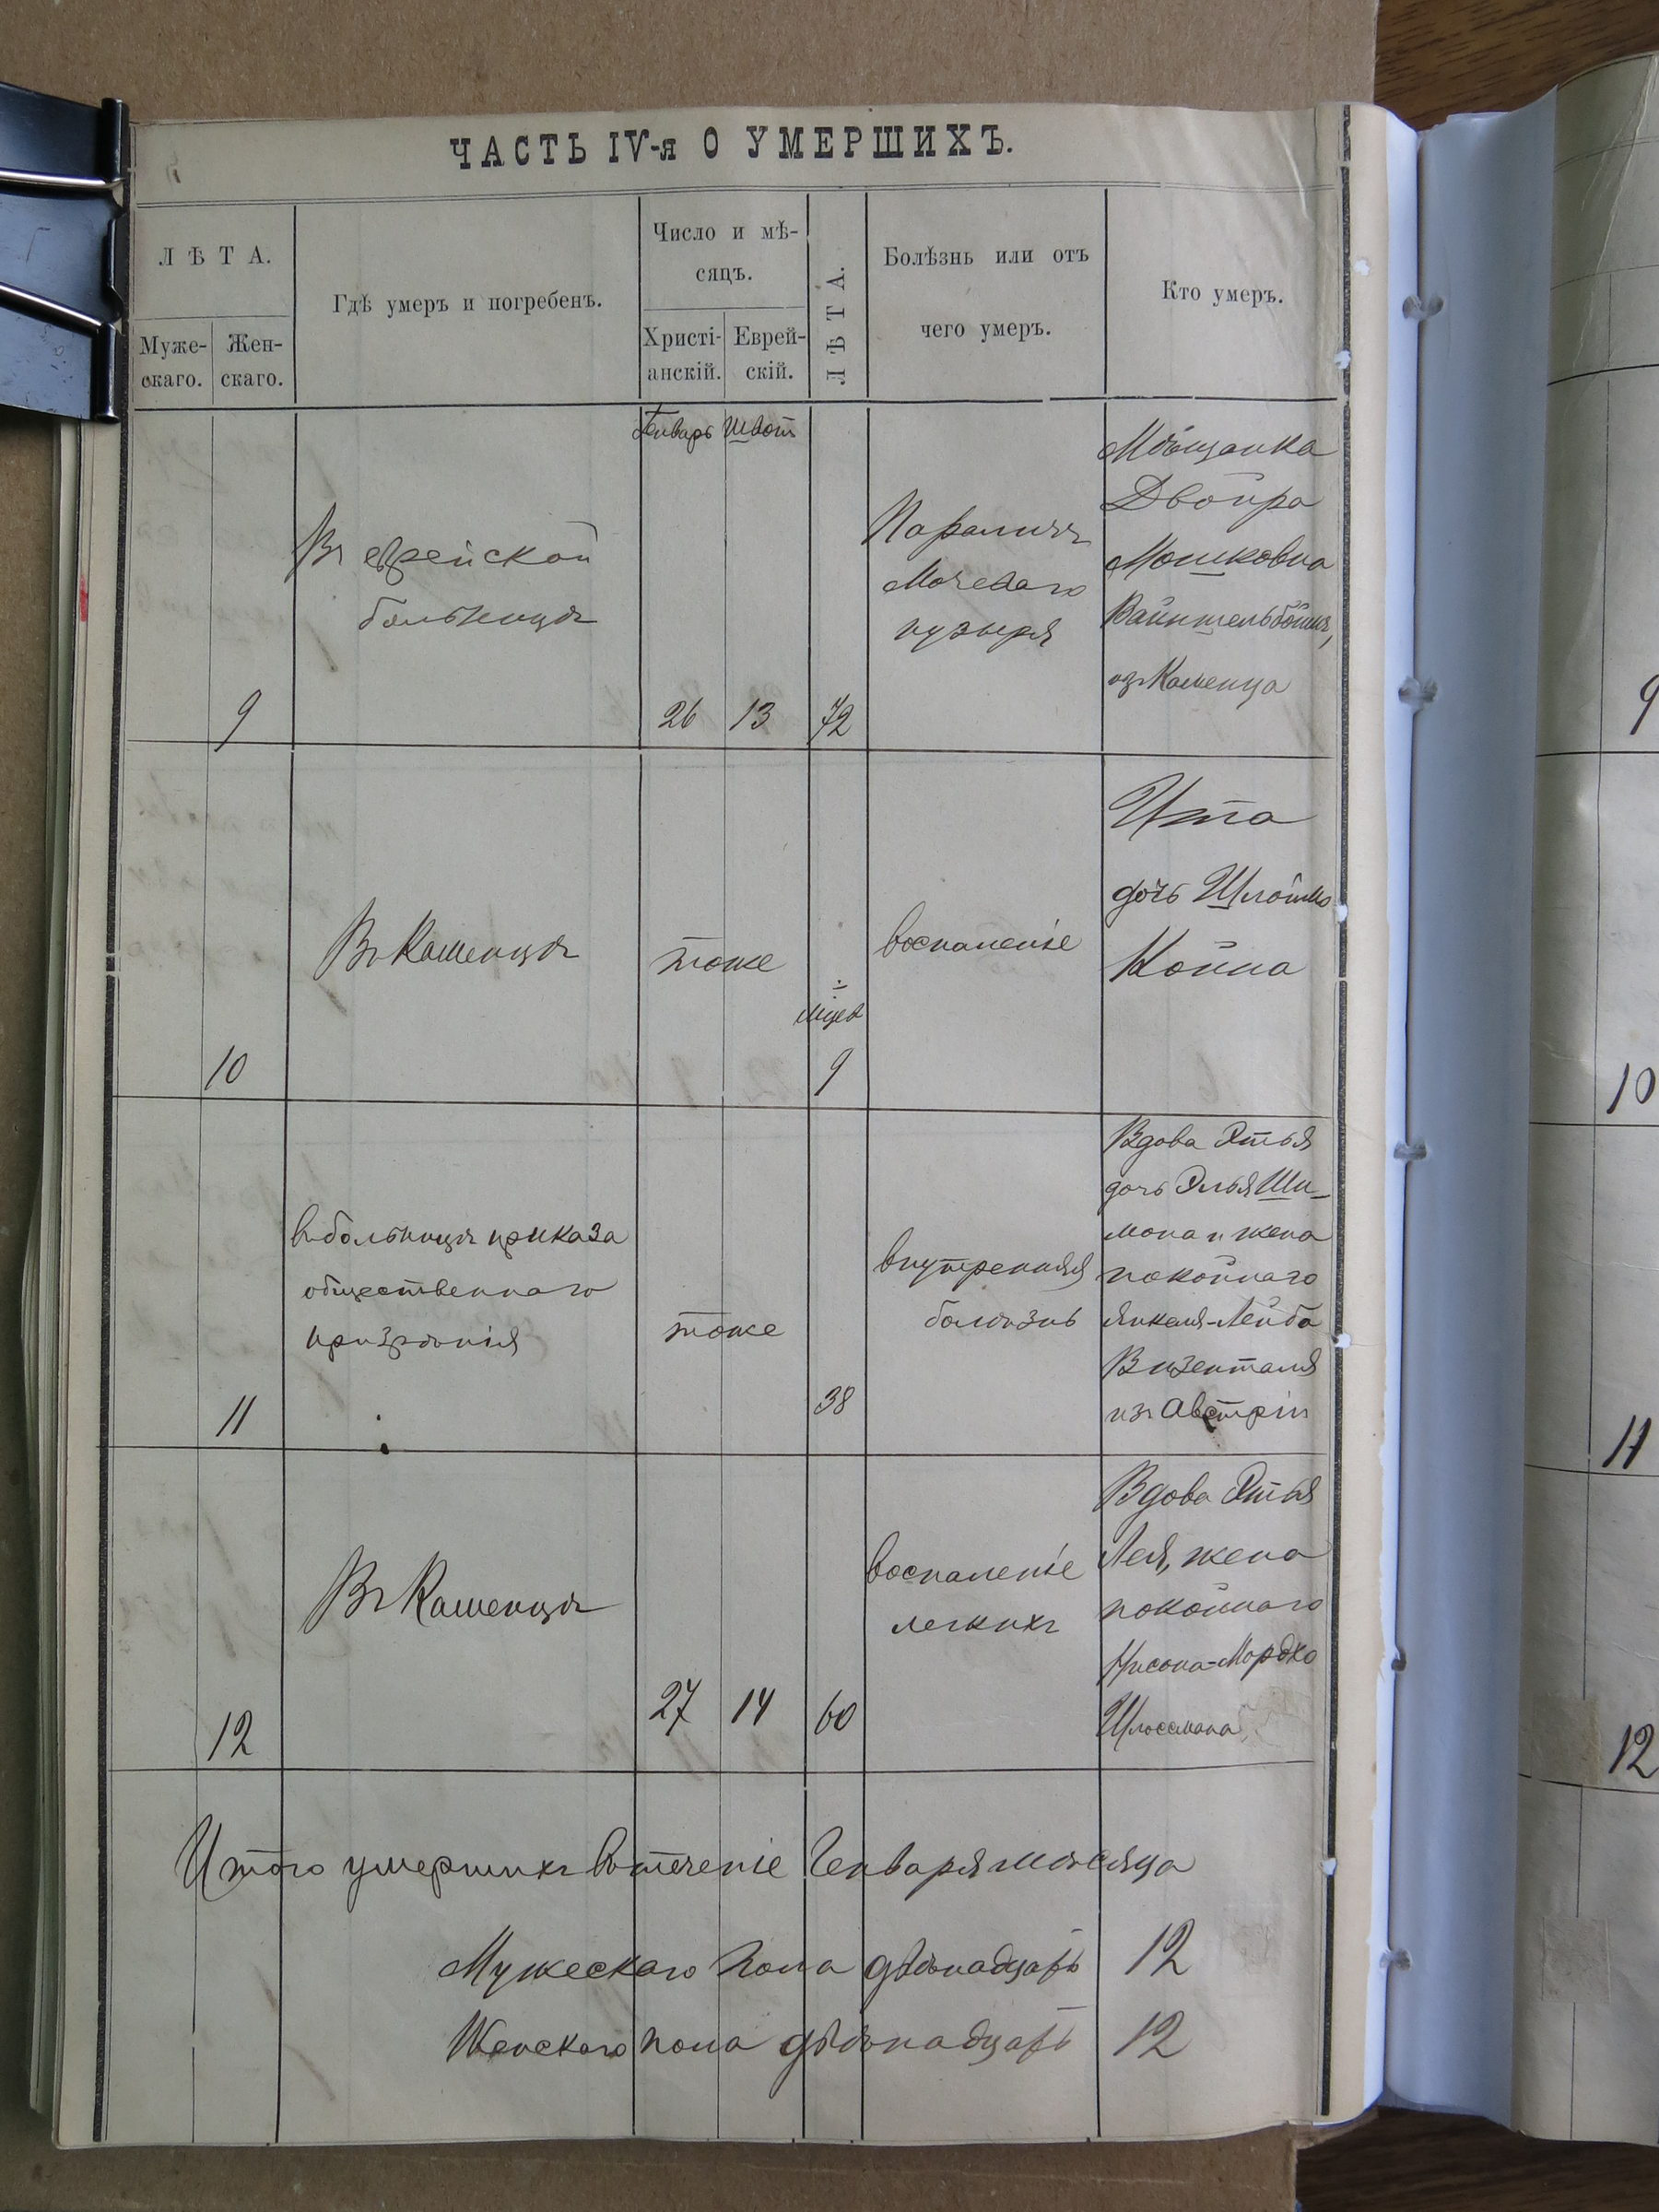 ЧАСТЬ IV-я О УМЕРШИХЪ.
ЛѢТА.
Муже-
скаго.
Жен-
скаго.
Гдѣ умеръ и погребенъ.
Число и мѣ-
сяцъ.
Христі-
анскій.
Еврей-
скій.
ЛѢТА.
Болѣзнь или отъ
чего умеръ.
Кто умеръ.
Январь Шватъ
9
Въ еврейской
больницѣ
26 13 72
Параличъ
Мочеваго
пузыря
Мѣщанка
Двойра
Мошковна
изъ Каменца
10
Въ Каменцѣ
тоже
мцев
9
воспаленіе
Ита
дочь Шлоймы
Койна
11
въ больницѣ приказа
общественнаго
призрѣнія
тоже
38
внутренняя
болѣзнь
Вдова Этья
дочь Элья Ши-
мона и жена
покойнаго
Янкеля-Лейба
Визенталя
изъ Австріи
12
Въ Каменцѣ
27 14 60
воспаленіе
легкихъ
Вдова Этья
Лея, жена
покойнаго
Нисона-Мордко
Шлоссмана
Итого умершихъ втеченіе Генваря мѣсяца
Мужескаго пола двѣнадцать 12
Женскаго пола двѣнадцать 12
9
10
11
12